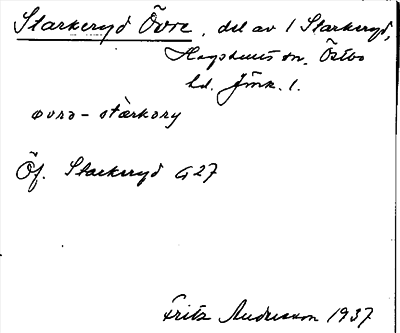 Starkeryd Övre, del av 1 Starkeryd,
Hagshults sn. Östbo
hd. Jönk. l.
øvrə - stàrkəry
Öf. Starkeryd G27
Fritz Andersson 1937